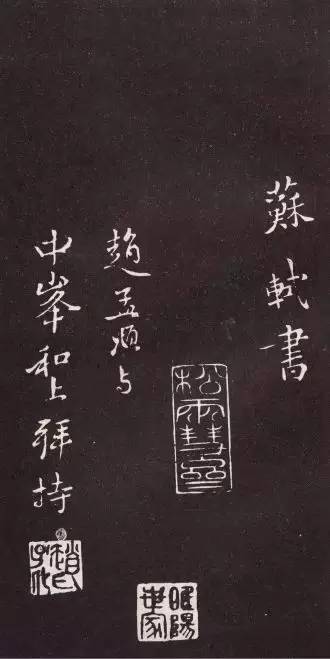 蘇軾書
松雪齋
趙孟頫与
中峯和上拜持
趙氏子昂
睢陽世家